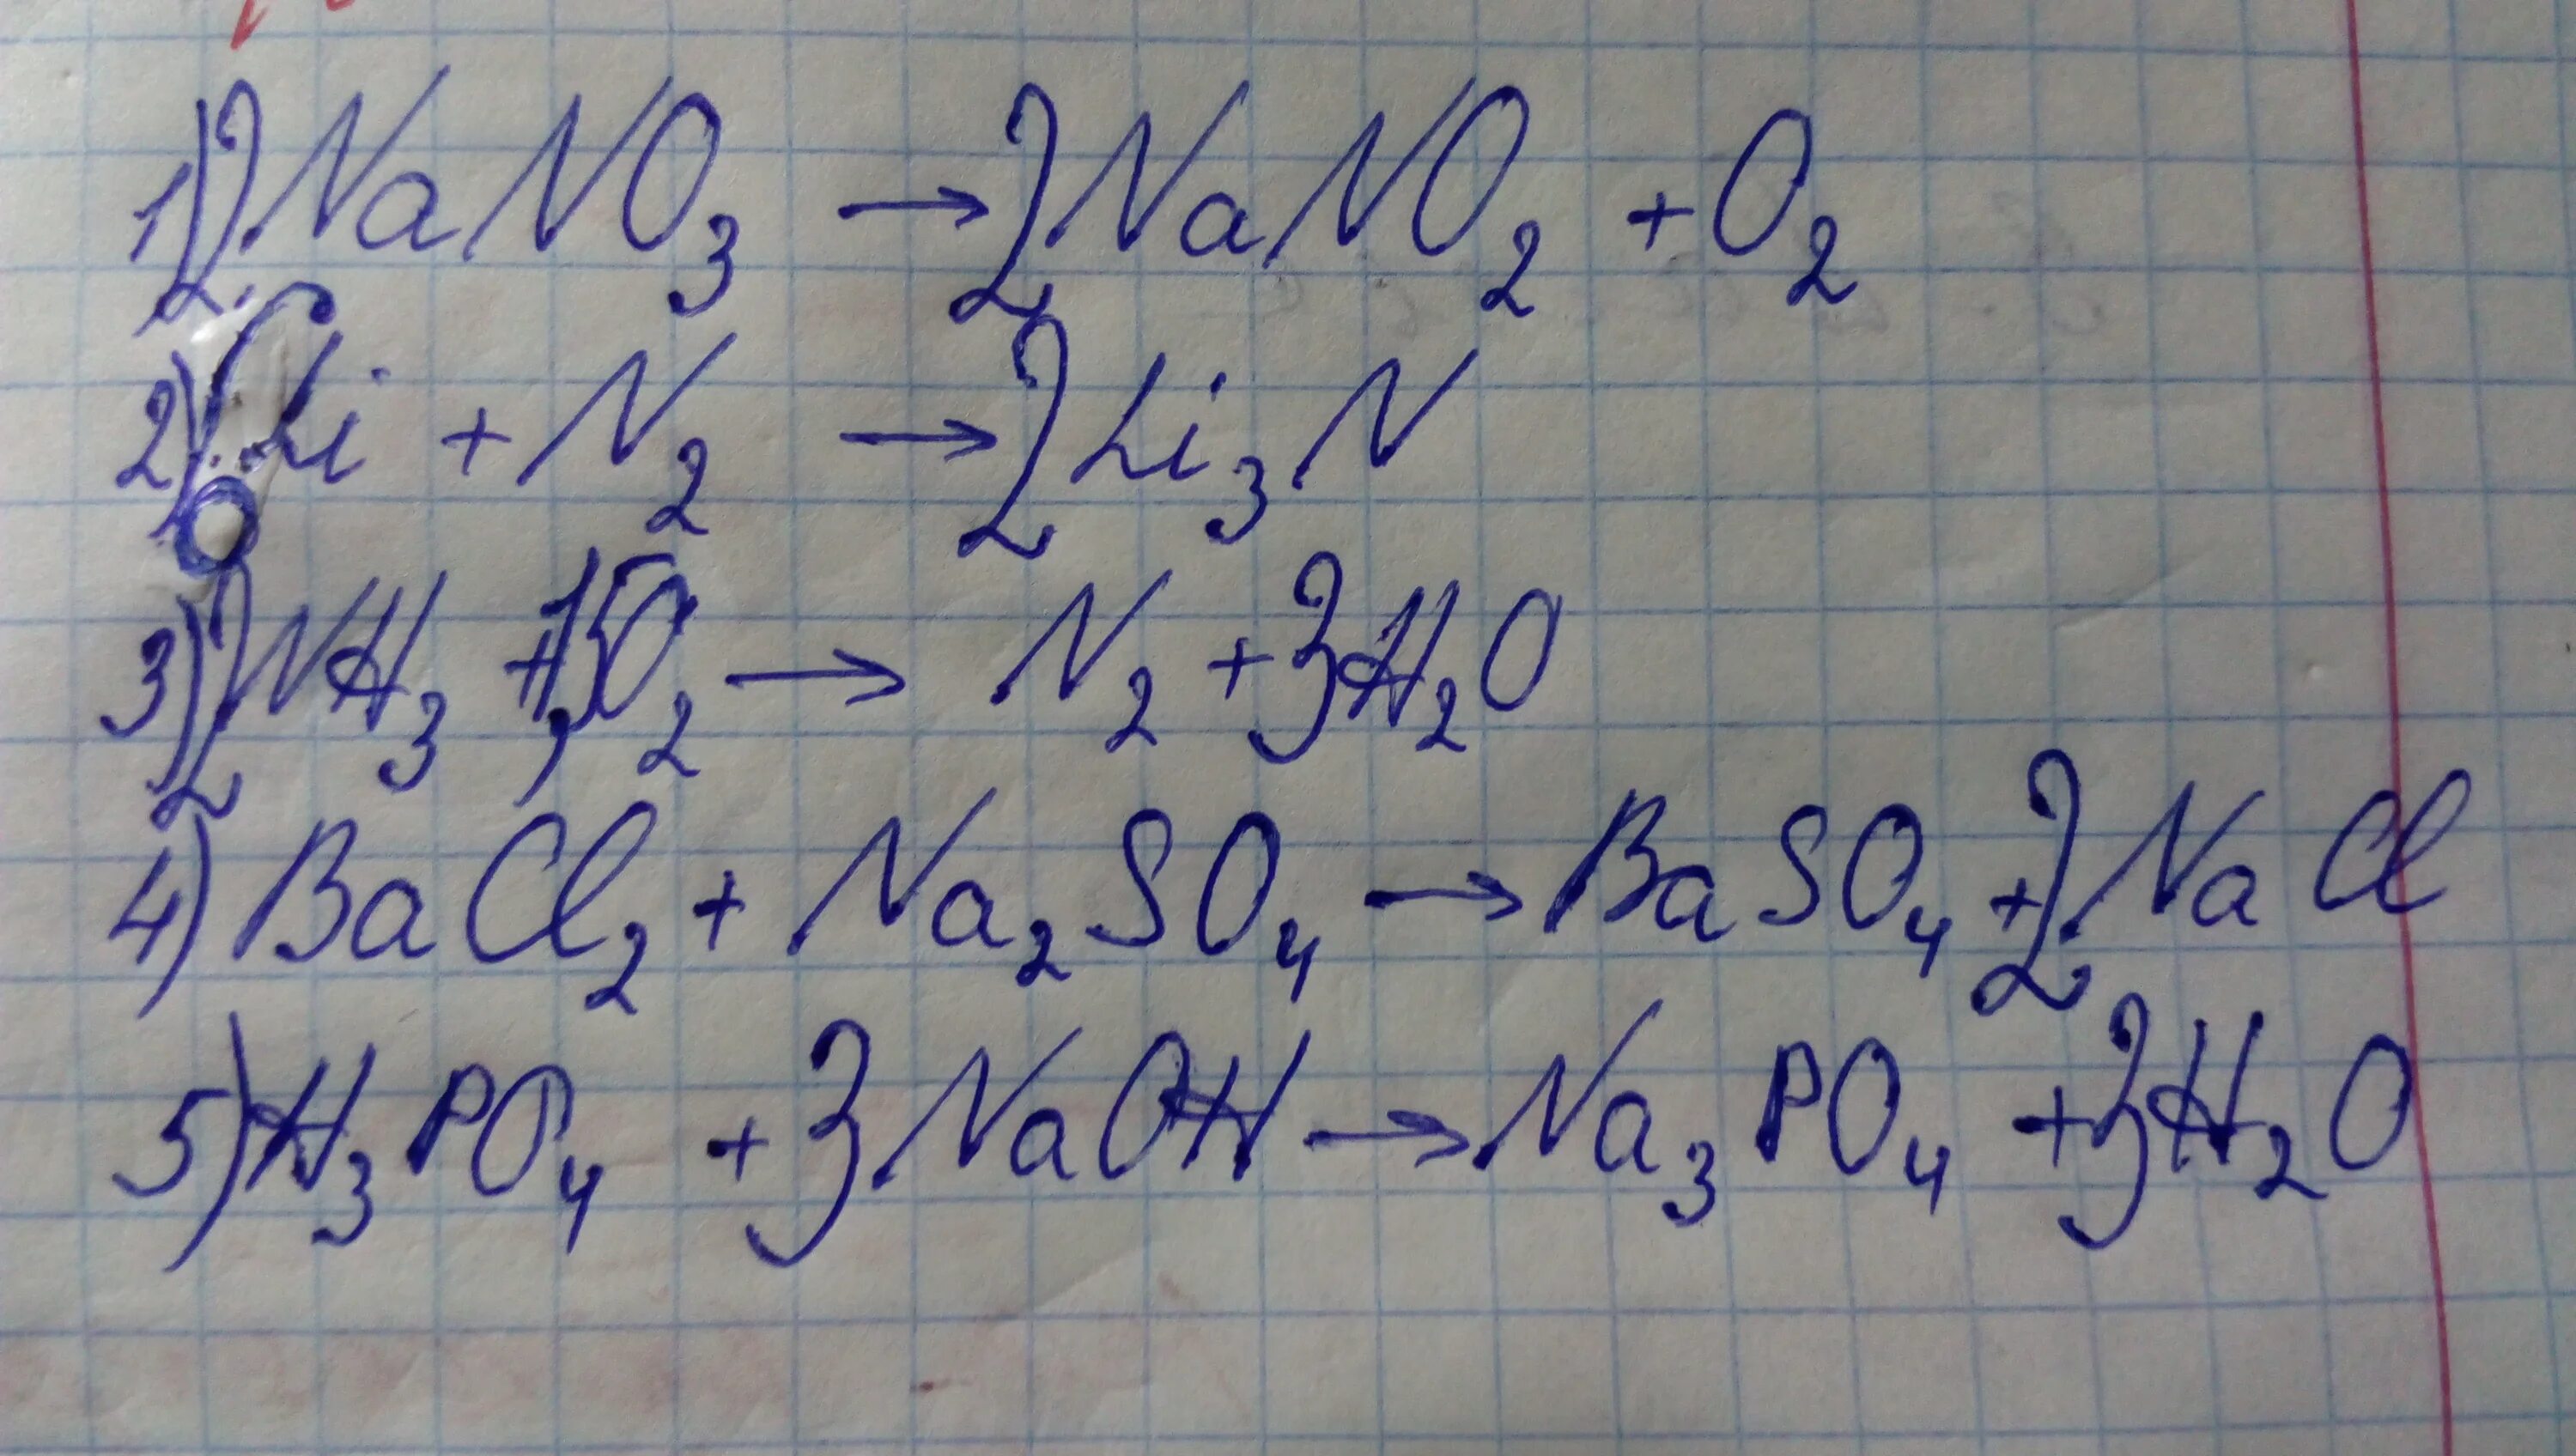 1) 2NaNO₃ → 2NaNO₂ + O₂
2) 6Li + N₂ → 2Li₃N
3) 2NH₃ + 1,5O₂ → N₂ + 3H₂O
4) BaCl₂ + Na₂SO₄ → BaSO₄ + 2NaCl
5) H₃PO₄ + 3NaOH → Na₃PO₄ + 3H₂O